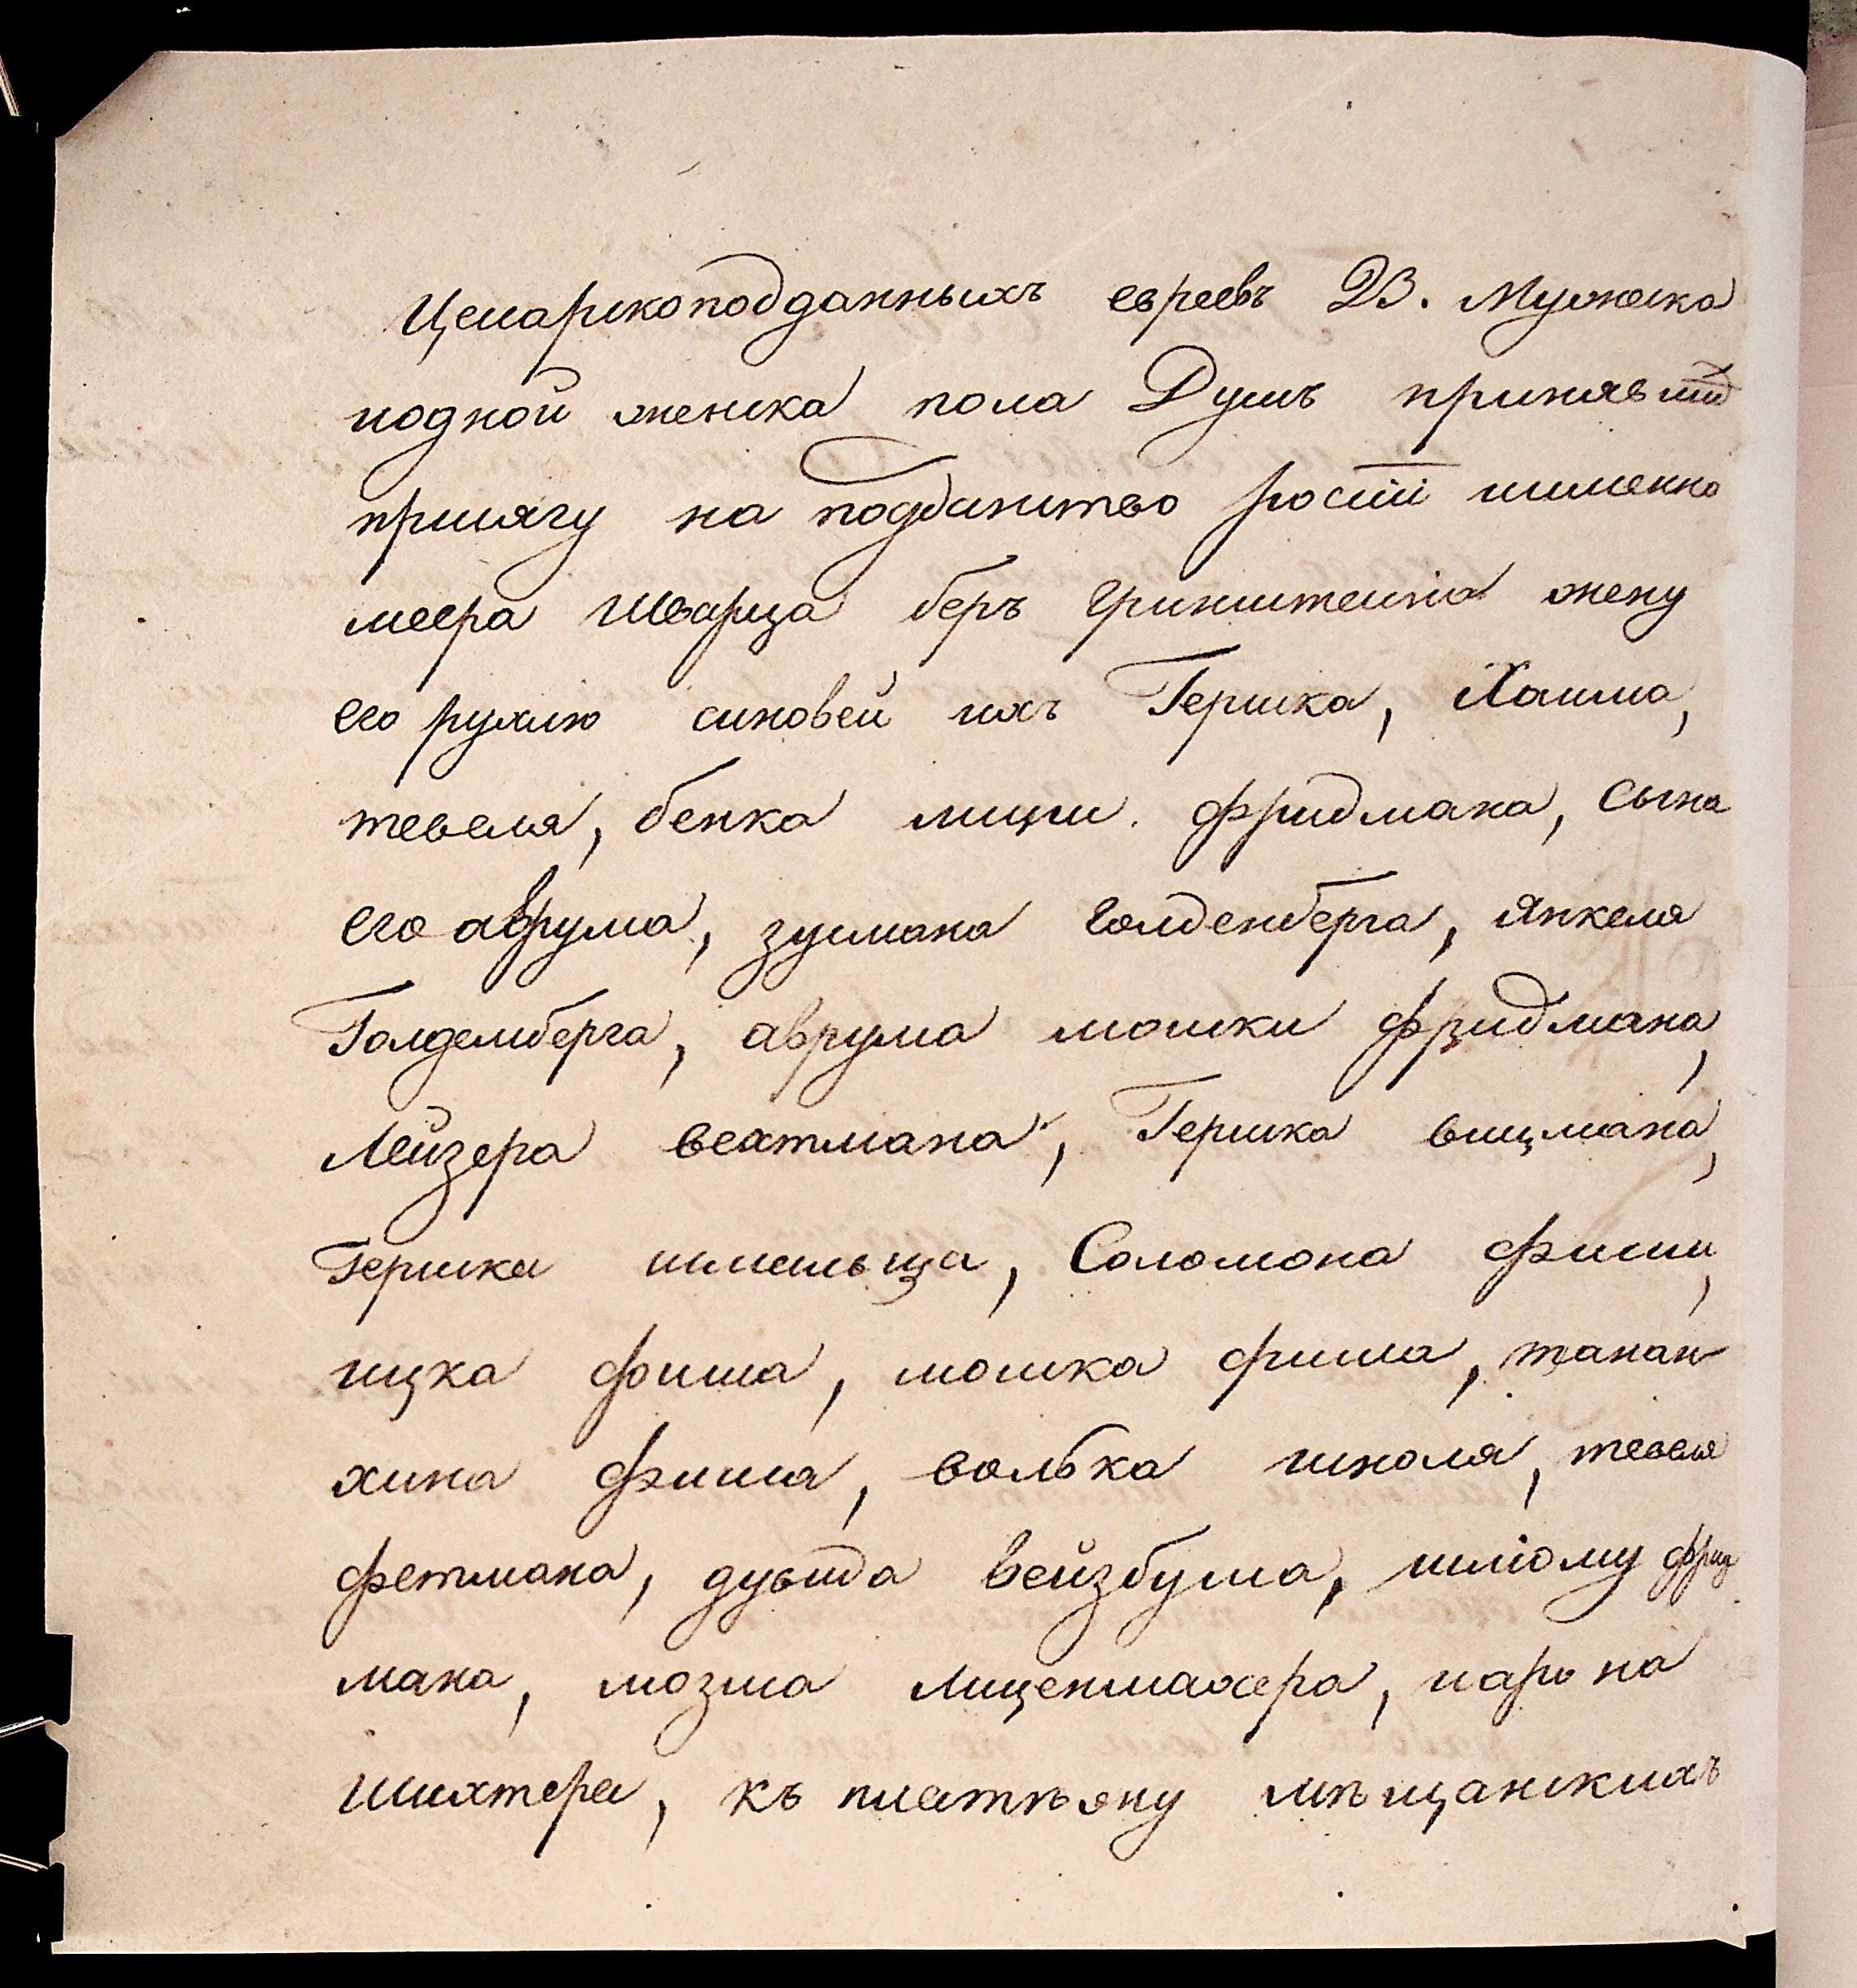 Цесарскоподданныхъ евреевъ 23. Мужеска
иодной женска пола Душъ принявшъ
присягу на подданство росіи имменно
меера Шварца беръ Гринштейна жену
его рухлю синовей ихъ Гершка, Хаима,
тевеля, бенка мици. фридмана, сына
его аврума, зусмана голденберга, янкеля
Голдемберга, аврума мошки фридмана,
Лейзера вехтмана, Гершка вицмана,
Гершка шмельца, Соломона фиши,
ицка фиша, мошка фиша, танан
хина фиша, волька школя, тевеля
фетмана, дувида вейзбума, шліому фрид
мана, мозиа Лиценмахера, нарона
Шихтера, къ платѣжу мѣщанскихъ